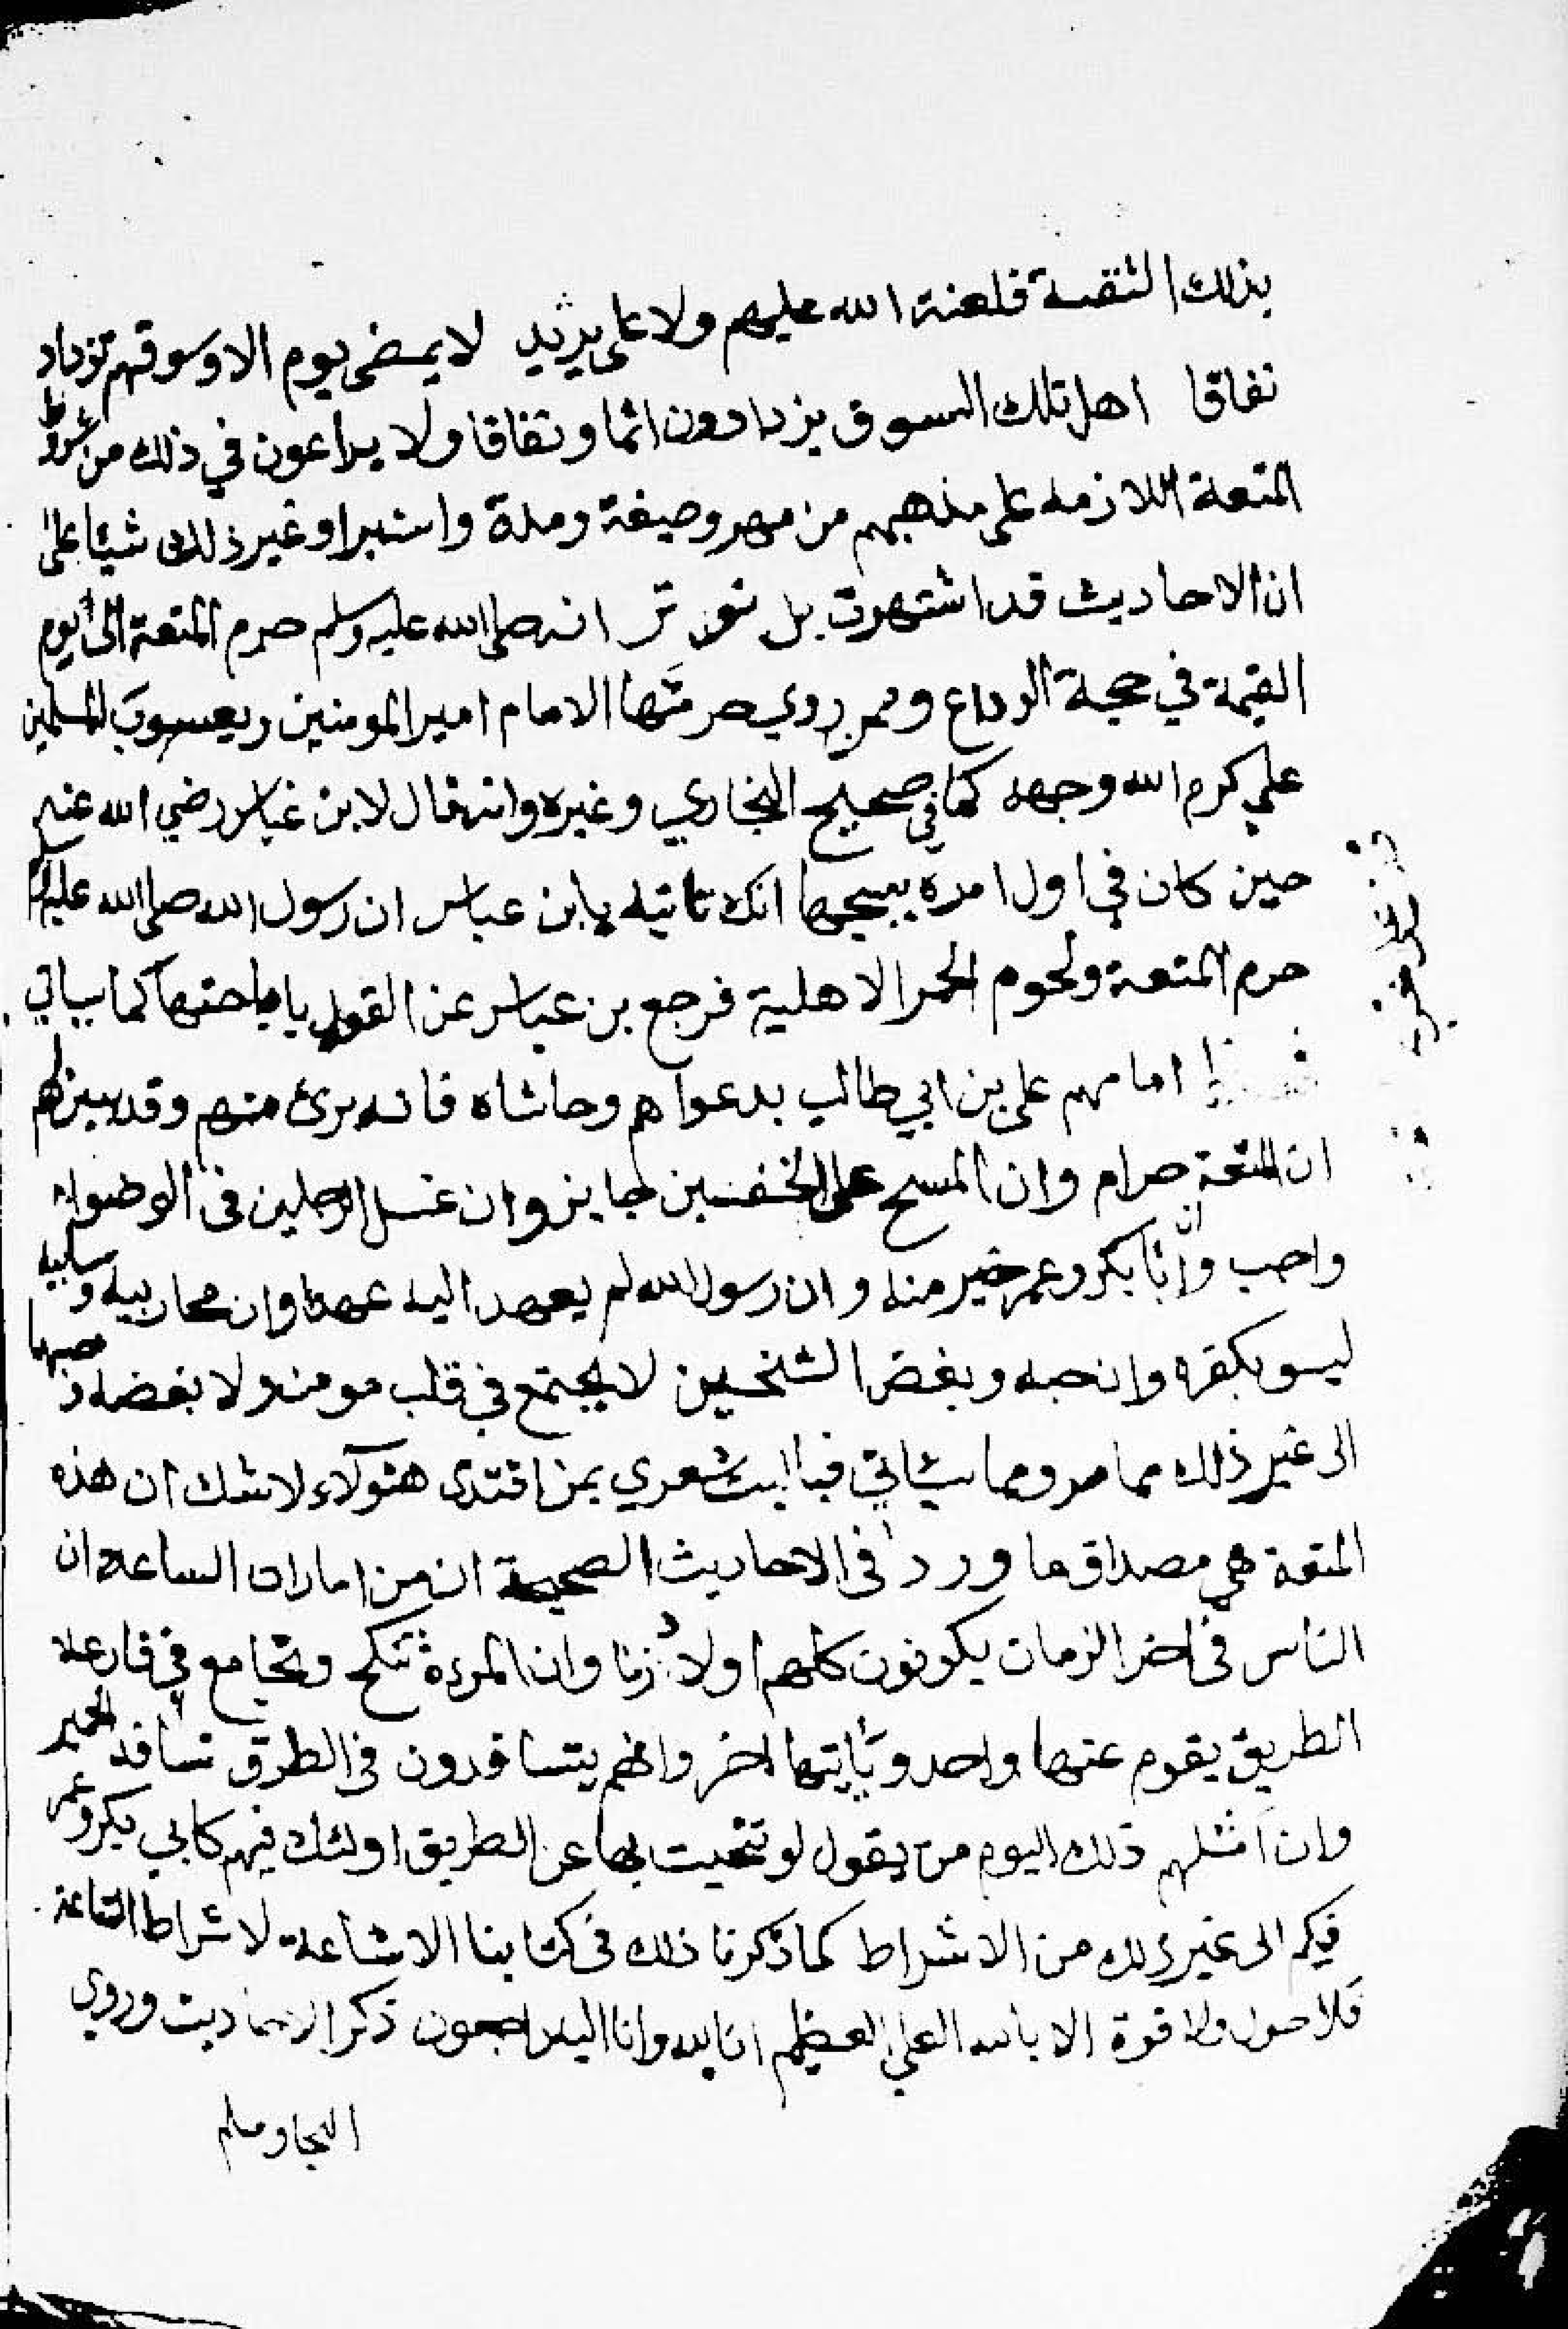 بذلك الثقبة فلعنة الله عليهم ولا على يزيد لا يمضي يوم الا وسوقهم تزداد
نفاقا اهل تلك السوق يزدادون اثما ونفاقا ولا يراعون في ذلك من شروط
المتعة اللازمه على مذهبهم من مهر وصيغة ومدة واستبرا وغير ذلك شيئا على
ان الاحاديث قد اشتهرت بل تو تر انه صلى الله عليه وسلم حرم المتعة الى يوم
القيمة في حجة الوداع وممن روي حرمتها الامام امير المومنين ويعسوب المسلمين
علي كرم الله وجهه كما في صحيح البخاري وغيره وانه قال لابن عباس رضي الله عنهم
حين كان في اول امره يبيحها انك تائيه يا بن عباس ان رسول الله صلى الله عليه وسلم
حرم المتعة ولحوم الحمر الاهلية فرجع بن عباس عن القول باباحتها كما سياتي
امامهم على بن ابي طالب بدعواهم وحاشاه فانه برئ منهم وقد بين لهم
ان المتعة حرام وان المسح على الخفين لجايز وان غسل الرجلين في الوضوء
واجب وان ابا بكر وعمر خير منه وان رسول الله لم يعهد اليه عهدا وان محاربيه وسابيه
ليسو بكفره وان حبه وبغض الشيخين لا يجتمع في قلب مومن ولا بغضه وحبهما
الى غير ذلك مما مر ومما سياتي فيا ليت شعري بمن اقتدى هئولاء لا شك ان هذه
المتعة هي مصداق ما ورد في الاحاديث الصحيحة انه من امارات الساعه ان
الناس في اخر الزمان يكونون كلهم اولاد زنا وان المرءة تنكح وتجامع في قارعة
الطريق يقوم عنها واحد وياتيها اخر وانهم يتسافدون في الطرق تسافد الحمير
وان امثلهم ذلك اليوم من يقول لو تنحيت بها عن الطريق اولئك فيهم كابي بكر وعمر
فيكم الى غير ذلك من الاشراط كما ذكرنا ذلك في كتابنا الاشاعة لاشراط الساعة
فلا حول ولا قوة الا بالله العلي العظيم انا لله وانا اليه راجعون ذكر الاحاديث وروي
البخا ومسلم